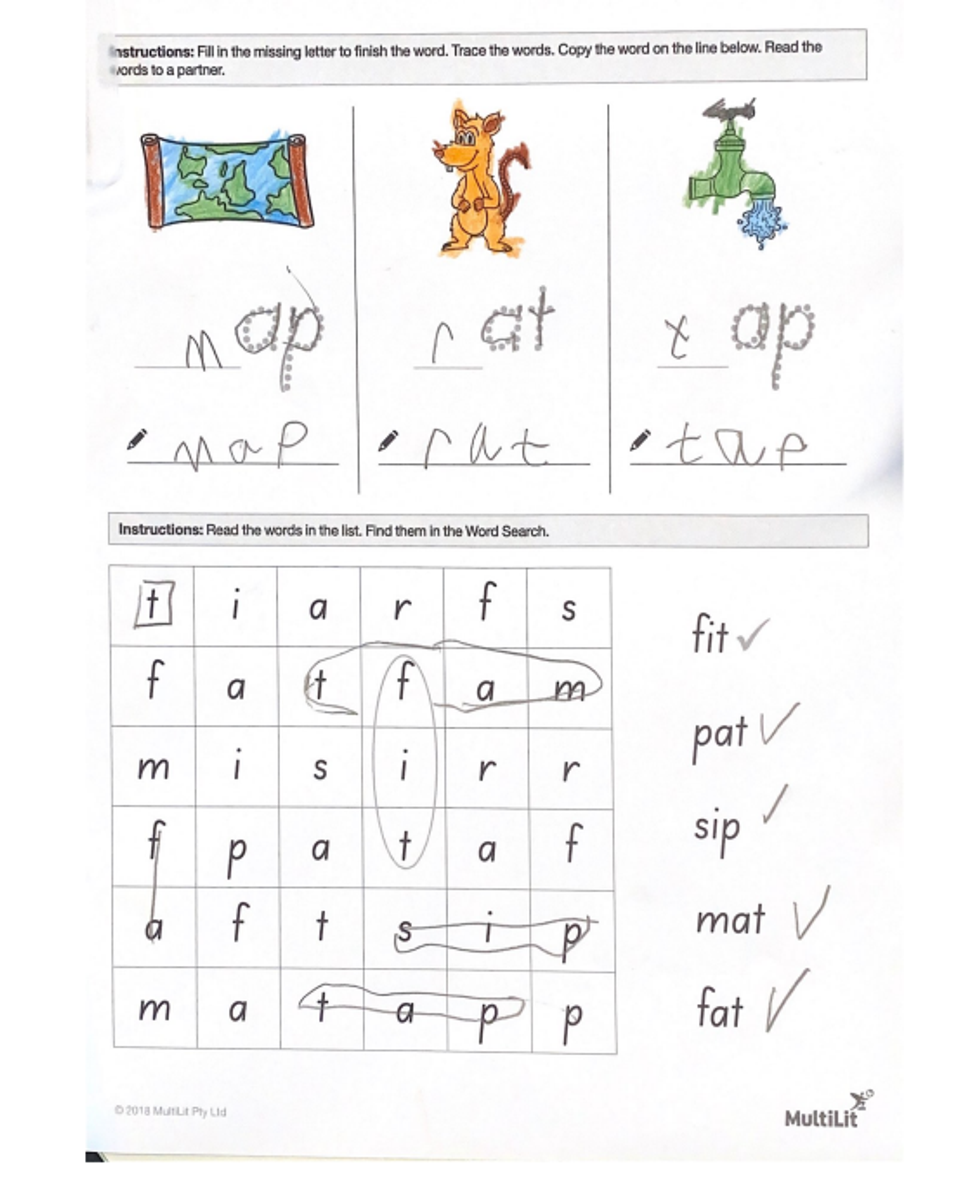 nstructions: Fill in the missing letter to finish the word. Trace the words. Copy the word on the line below. Read the
words to a partner.
m ap r at t ap
map rat tap
Instructions: Read the words in the list. Find them in the Word Search.
t i a r f s
fit ✓
f a t f a m
pat ✓
m i s i r r
sip ✓
f p a t a f
mat ✓
a f t s i p
fat ✓
m a t a p p
© 2018 MultiLit Pty Ltd
MultiLit